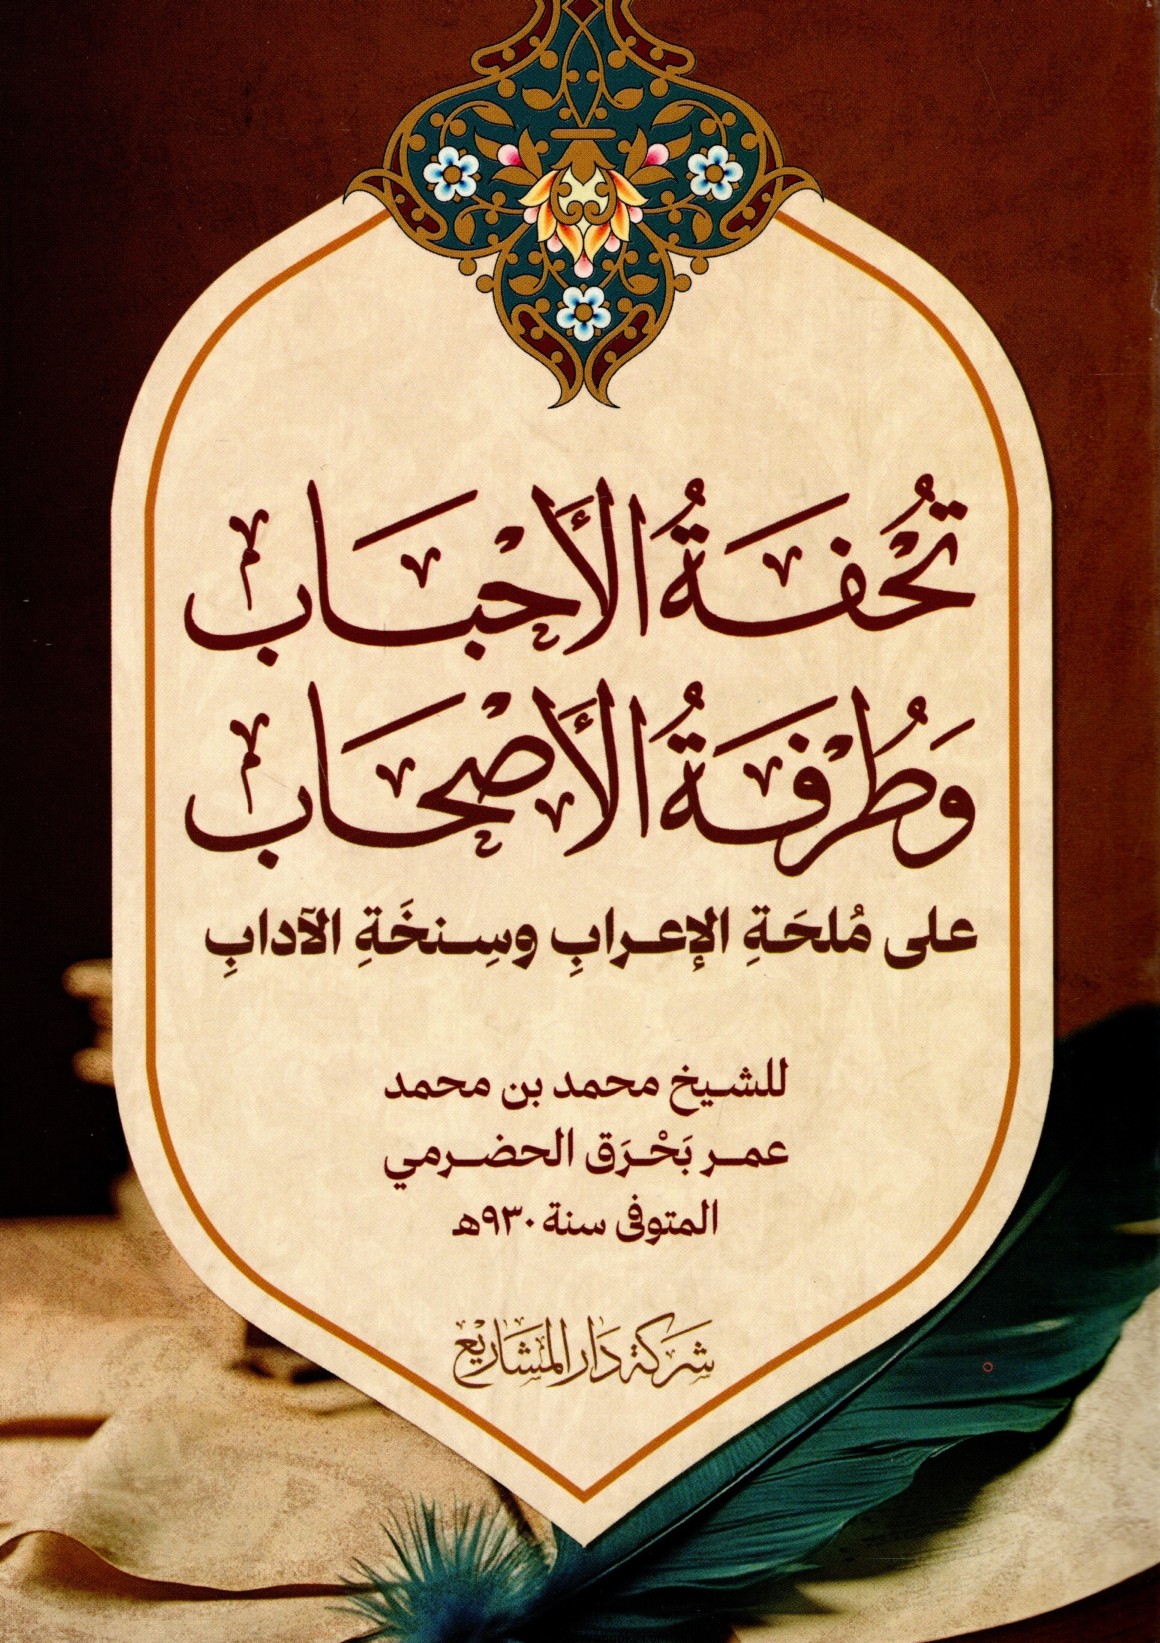 تُحفَةُ الأَحْبَاب
وَطُرْفَةُ الأَصْحَاب
على مُلحَةِ الإعرابِ وسِنخَةِ الآدابِ
للشيخ محمد بن محمد
عمر بَحْرَق الحضرمي
المتوفى سنة ٩٣٠هـ
شركة دار المشاريع